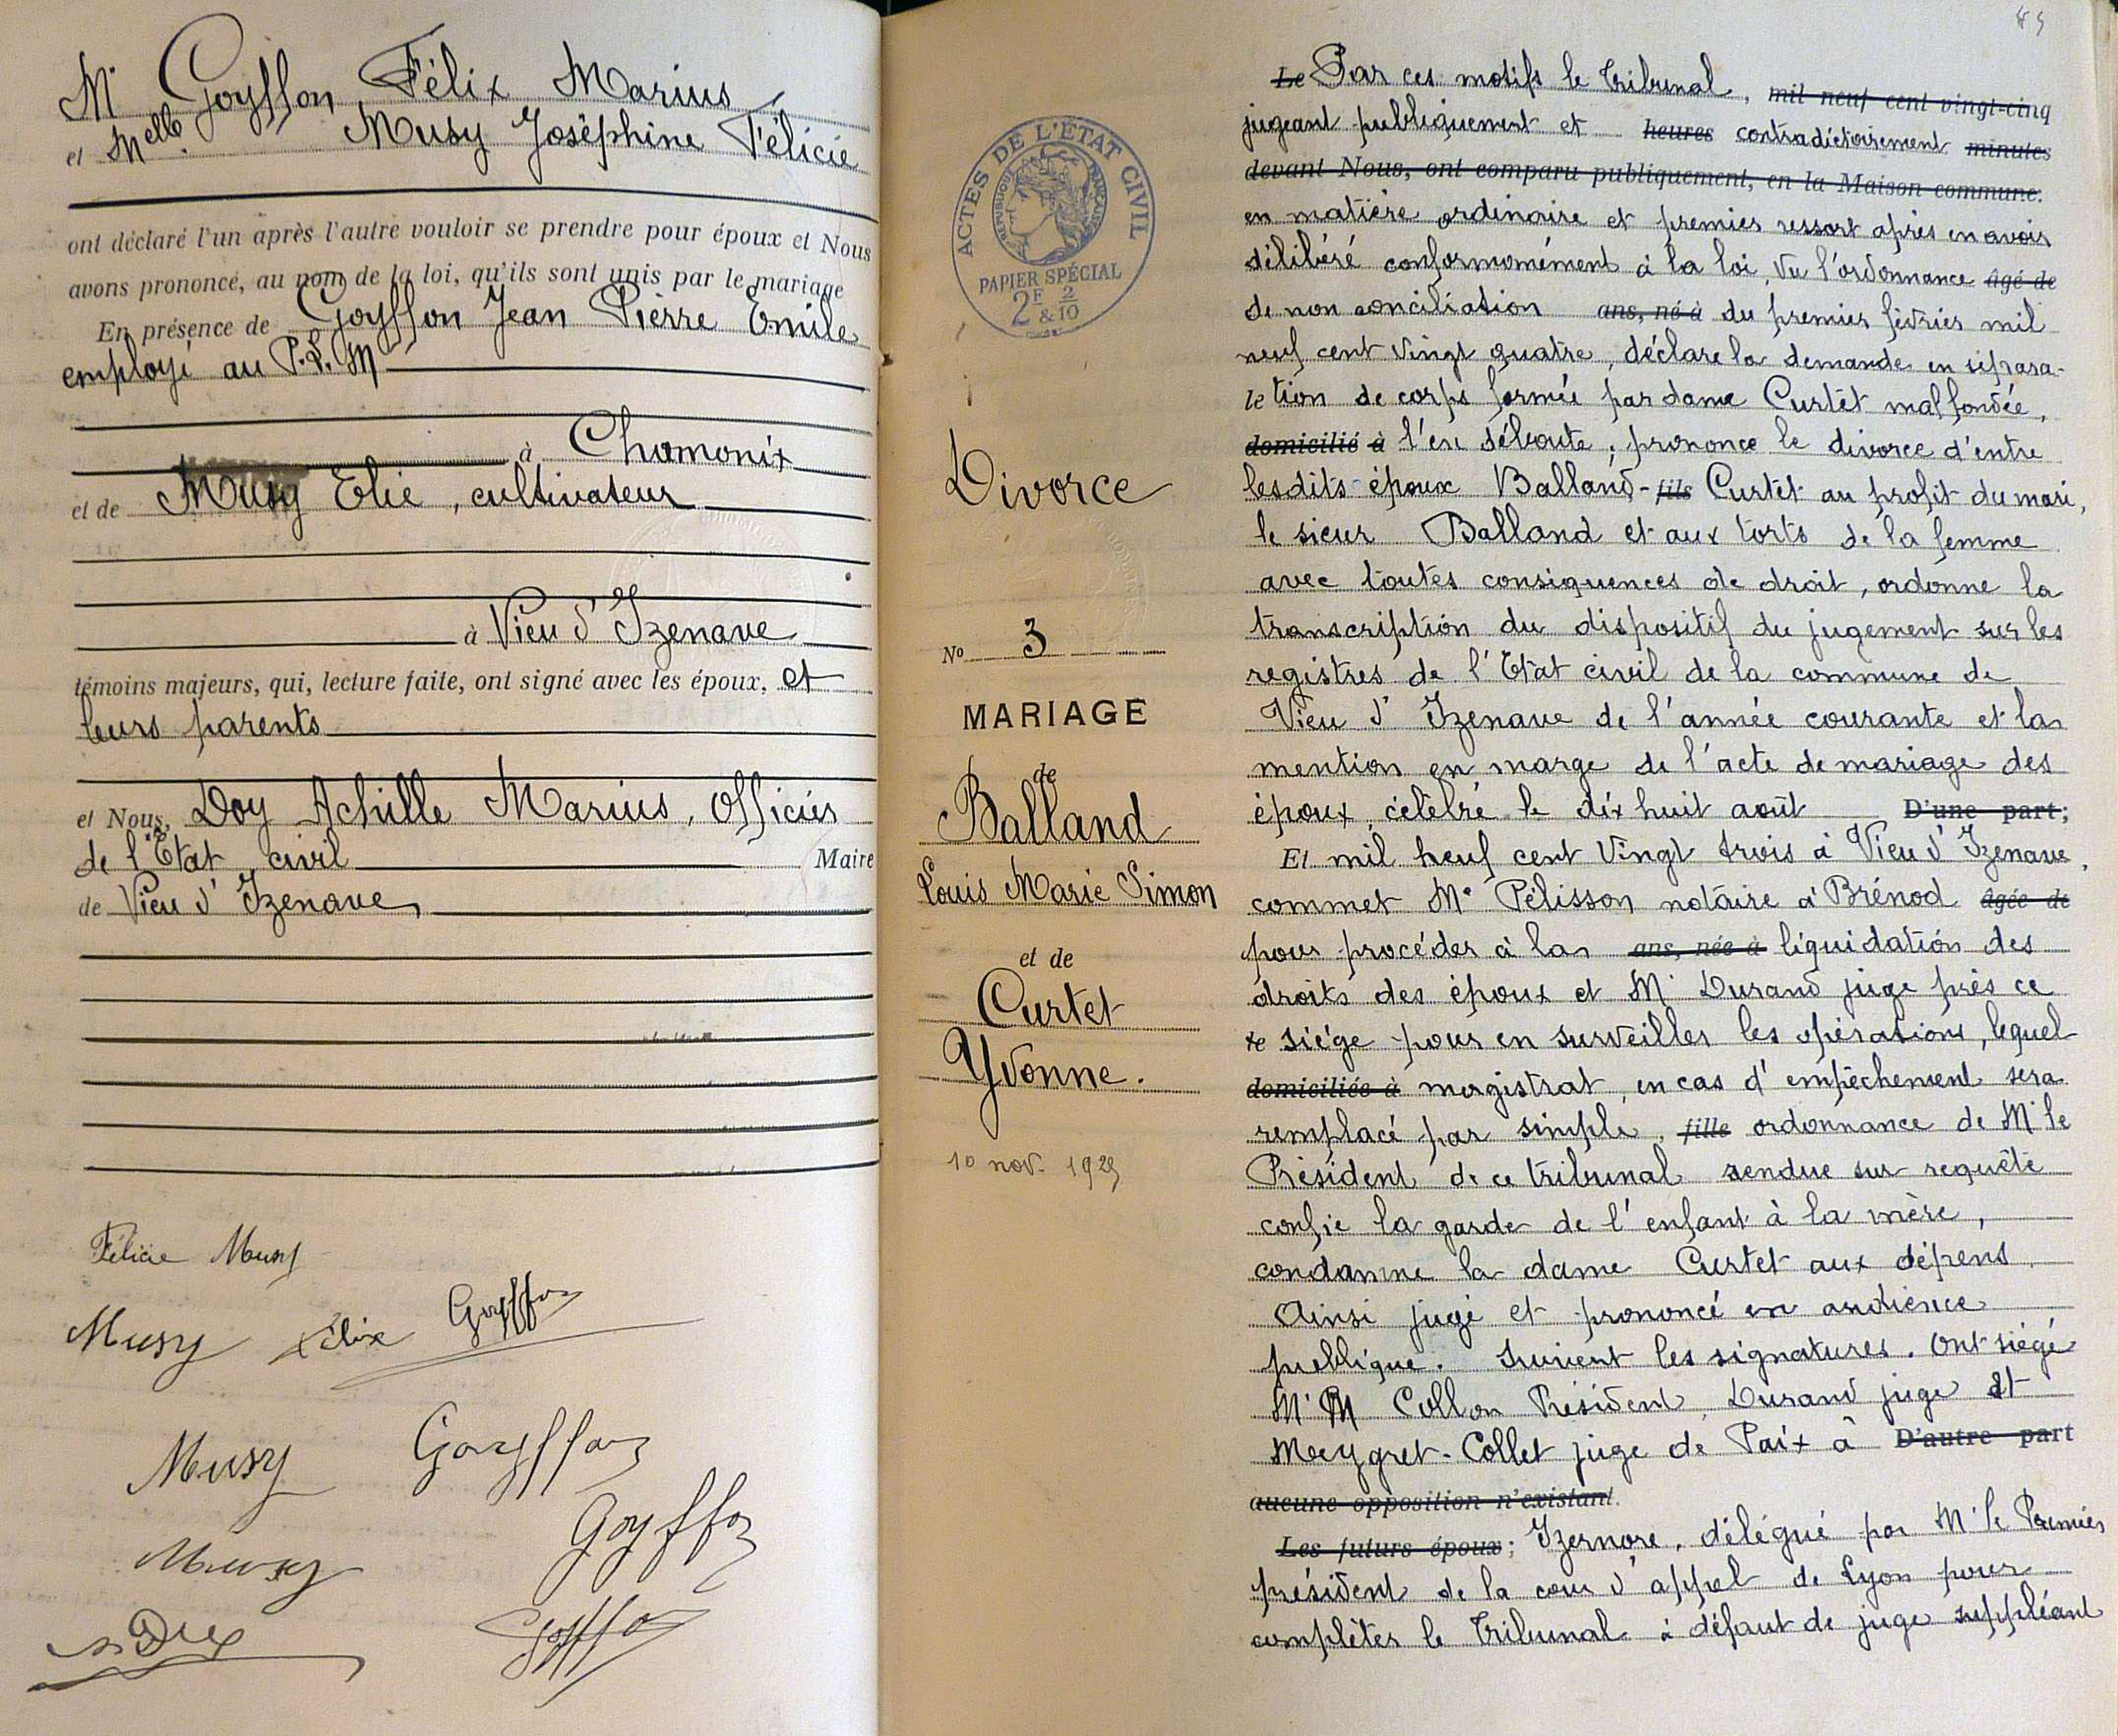 Mr Goyffon Félix Marius
et Melle Musy Joséphine Félicie
ont déclaré l'un après l'autre vouloir se prendre pour époux et Nous
avons prononcé, au nom de la loi, qu'ils sont unis par le mariage
En présence de Goyffon Jean Pierre Emile
employé au P.L.M
à Chamonix
et de Musy Elie, cultivateur
à Vieu d'Izenave
témoins majeurs, qui, lecture faite, ont signé avec les époux, et
leurs parents
et Nous, Doy Achille Marius, Officier
de l'Etat civil Maire
de Vieu d'Izenave
Félicie Musy
Musy Félix Goyffon
Musy Goyffon
Musy Goyffon
Goyffon
ACTES DE L'ÉTAT CIVIL
RÉPUBLIQUE FRANÇAISE
PAPIER SPÉCIAL
2F & 2/10
Divorce
No 3
MARIAGE
de
Balland
Louis Marie Simon
et de
Curtet
Yvonne.
10 nov. 1925
Le Par ces motifs le Tribunal, mil neuf cent vingt-cinq
jugeant publiquement et heures contradictoirement minutes
devant Nous, ont comparu publiquement, en la Maison commune:
en matière ordinaire et premier ressort après en avoir
délibéré conformémément à la loi, Vu l'ordonnance âgé de
de non conciliation ans, né à du premier février mil
neuf cent vingt quatre, déclare la demande en sépara-
le tion de corps formée par dame Curtet mal fondée,
domicilié à l'en déboute; prononce le divorce d'entre
lesdits époux Balland-fils Curtet au profit du mari,
le sieur Balland et aux torts de la femme
avec toutes conséquences de droit, ordonne la
transcription du dispositif du jugement sur les
registres de l'Etat civil de la commune de
Vieu d'Izenave de l'année courante et la
mention en marge de l'acte de mariage des
époux, célébré le dix huit août D'une part;
Et mil neuf cent vingt trois à Vieu d'Izenave,
commet Me Pélisson notaire à Brénod âgée de
pour procéder à la ans, née à liquidation des
droits des époux et Mr Durand juge près ce
le siège pour en surveiller les opérations, lequel
domiciliée à magistrat, en cas d'empêchement sera
remplacé par simple, fille ordonnance de Mr le
Président de ce tribunal rendue sur requête
confie la garde de l'enfant à la mère,
condamne la dame Curtet aux dépens.
Ainsi jugé et prononcé en audience
publique. Suivent les signatures. Ont siégé
M.M Collon Président, Durand juge et
Meygret-Collet juge de Paix à D'autre part
aucune opposition n'existant.
Les futurs époux; Izernore, délégué par Mr le Premier
président de la cour d'appel de Lyon pour
compléter le Tribunal à défaut de juge suppléant